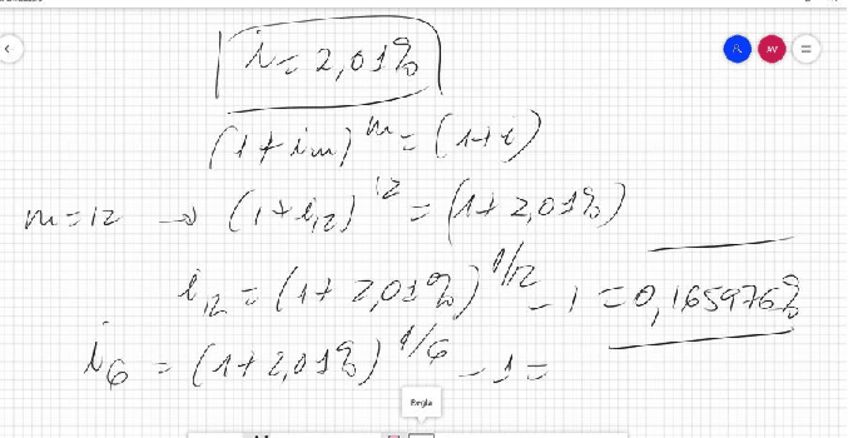 i = 2,01%
(1 + im)^m = (1 + i)
m = 12 → (1 + i12)^12 = (1 + 2,01%)
i12 = (1 + 2,01%)^1/12 - 1 = 0,165976%
i6 = (1 + 2,01%)^1/6 - 1 =
Regla